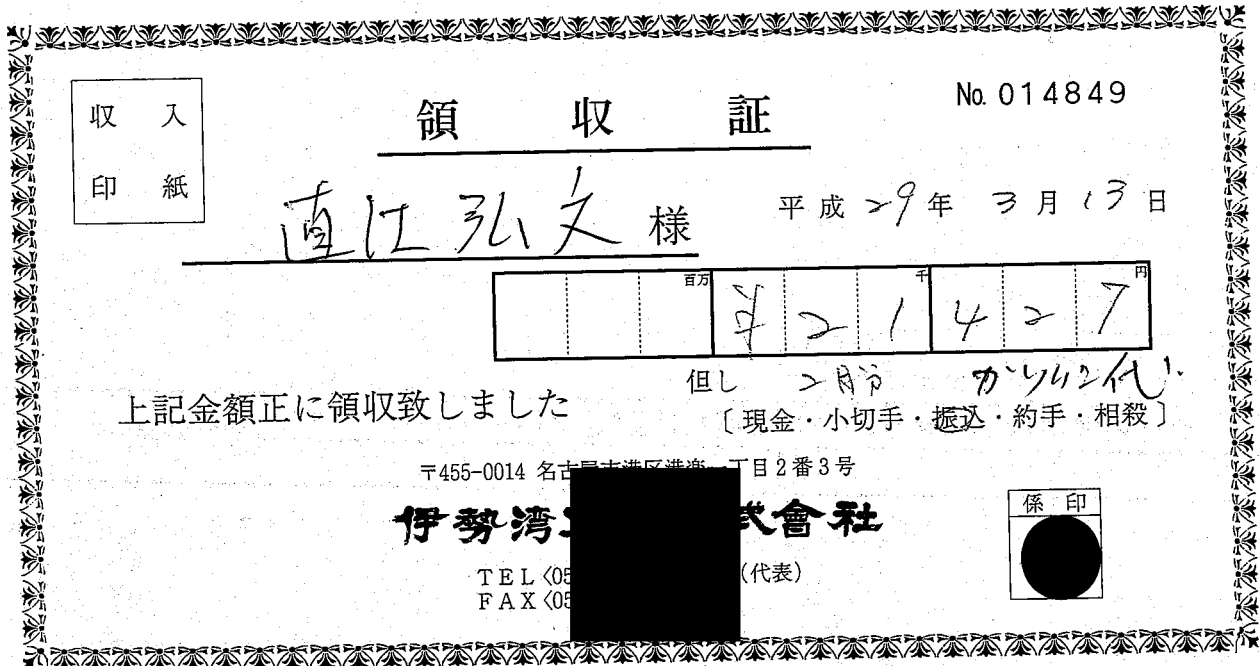 収 入
印 紙
領 収 証
No. 014849
直江 弘文 様
平成 29 年 3 月 13 日
百万 千 円
¥21427
但し 2月分 ガソリン代
上記金額正に領収致しました
〔現金・小切手・振込・約手・相殺〕
〒455-0014 名古屋市港区港楽一丁目2番3号
伊勢湾 式會社
TEL〈05 (代表)
FAX〈05
係 印